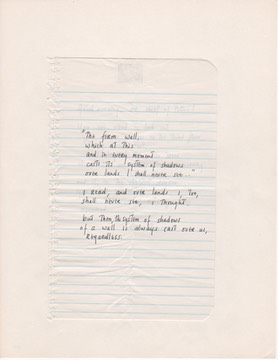 "The firm wall,
which at this
and in every moment
casts its system of shadows
over lands I shall never see."
I read, and over lands I, too,
shall never see, I thought
but then, the system of shadows
of a wall is always cast over us,
Regardless.